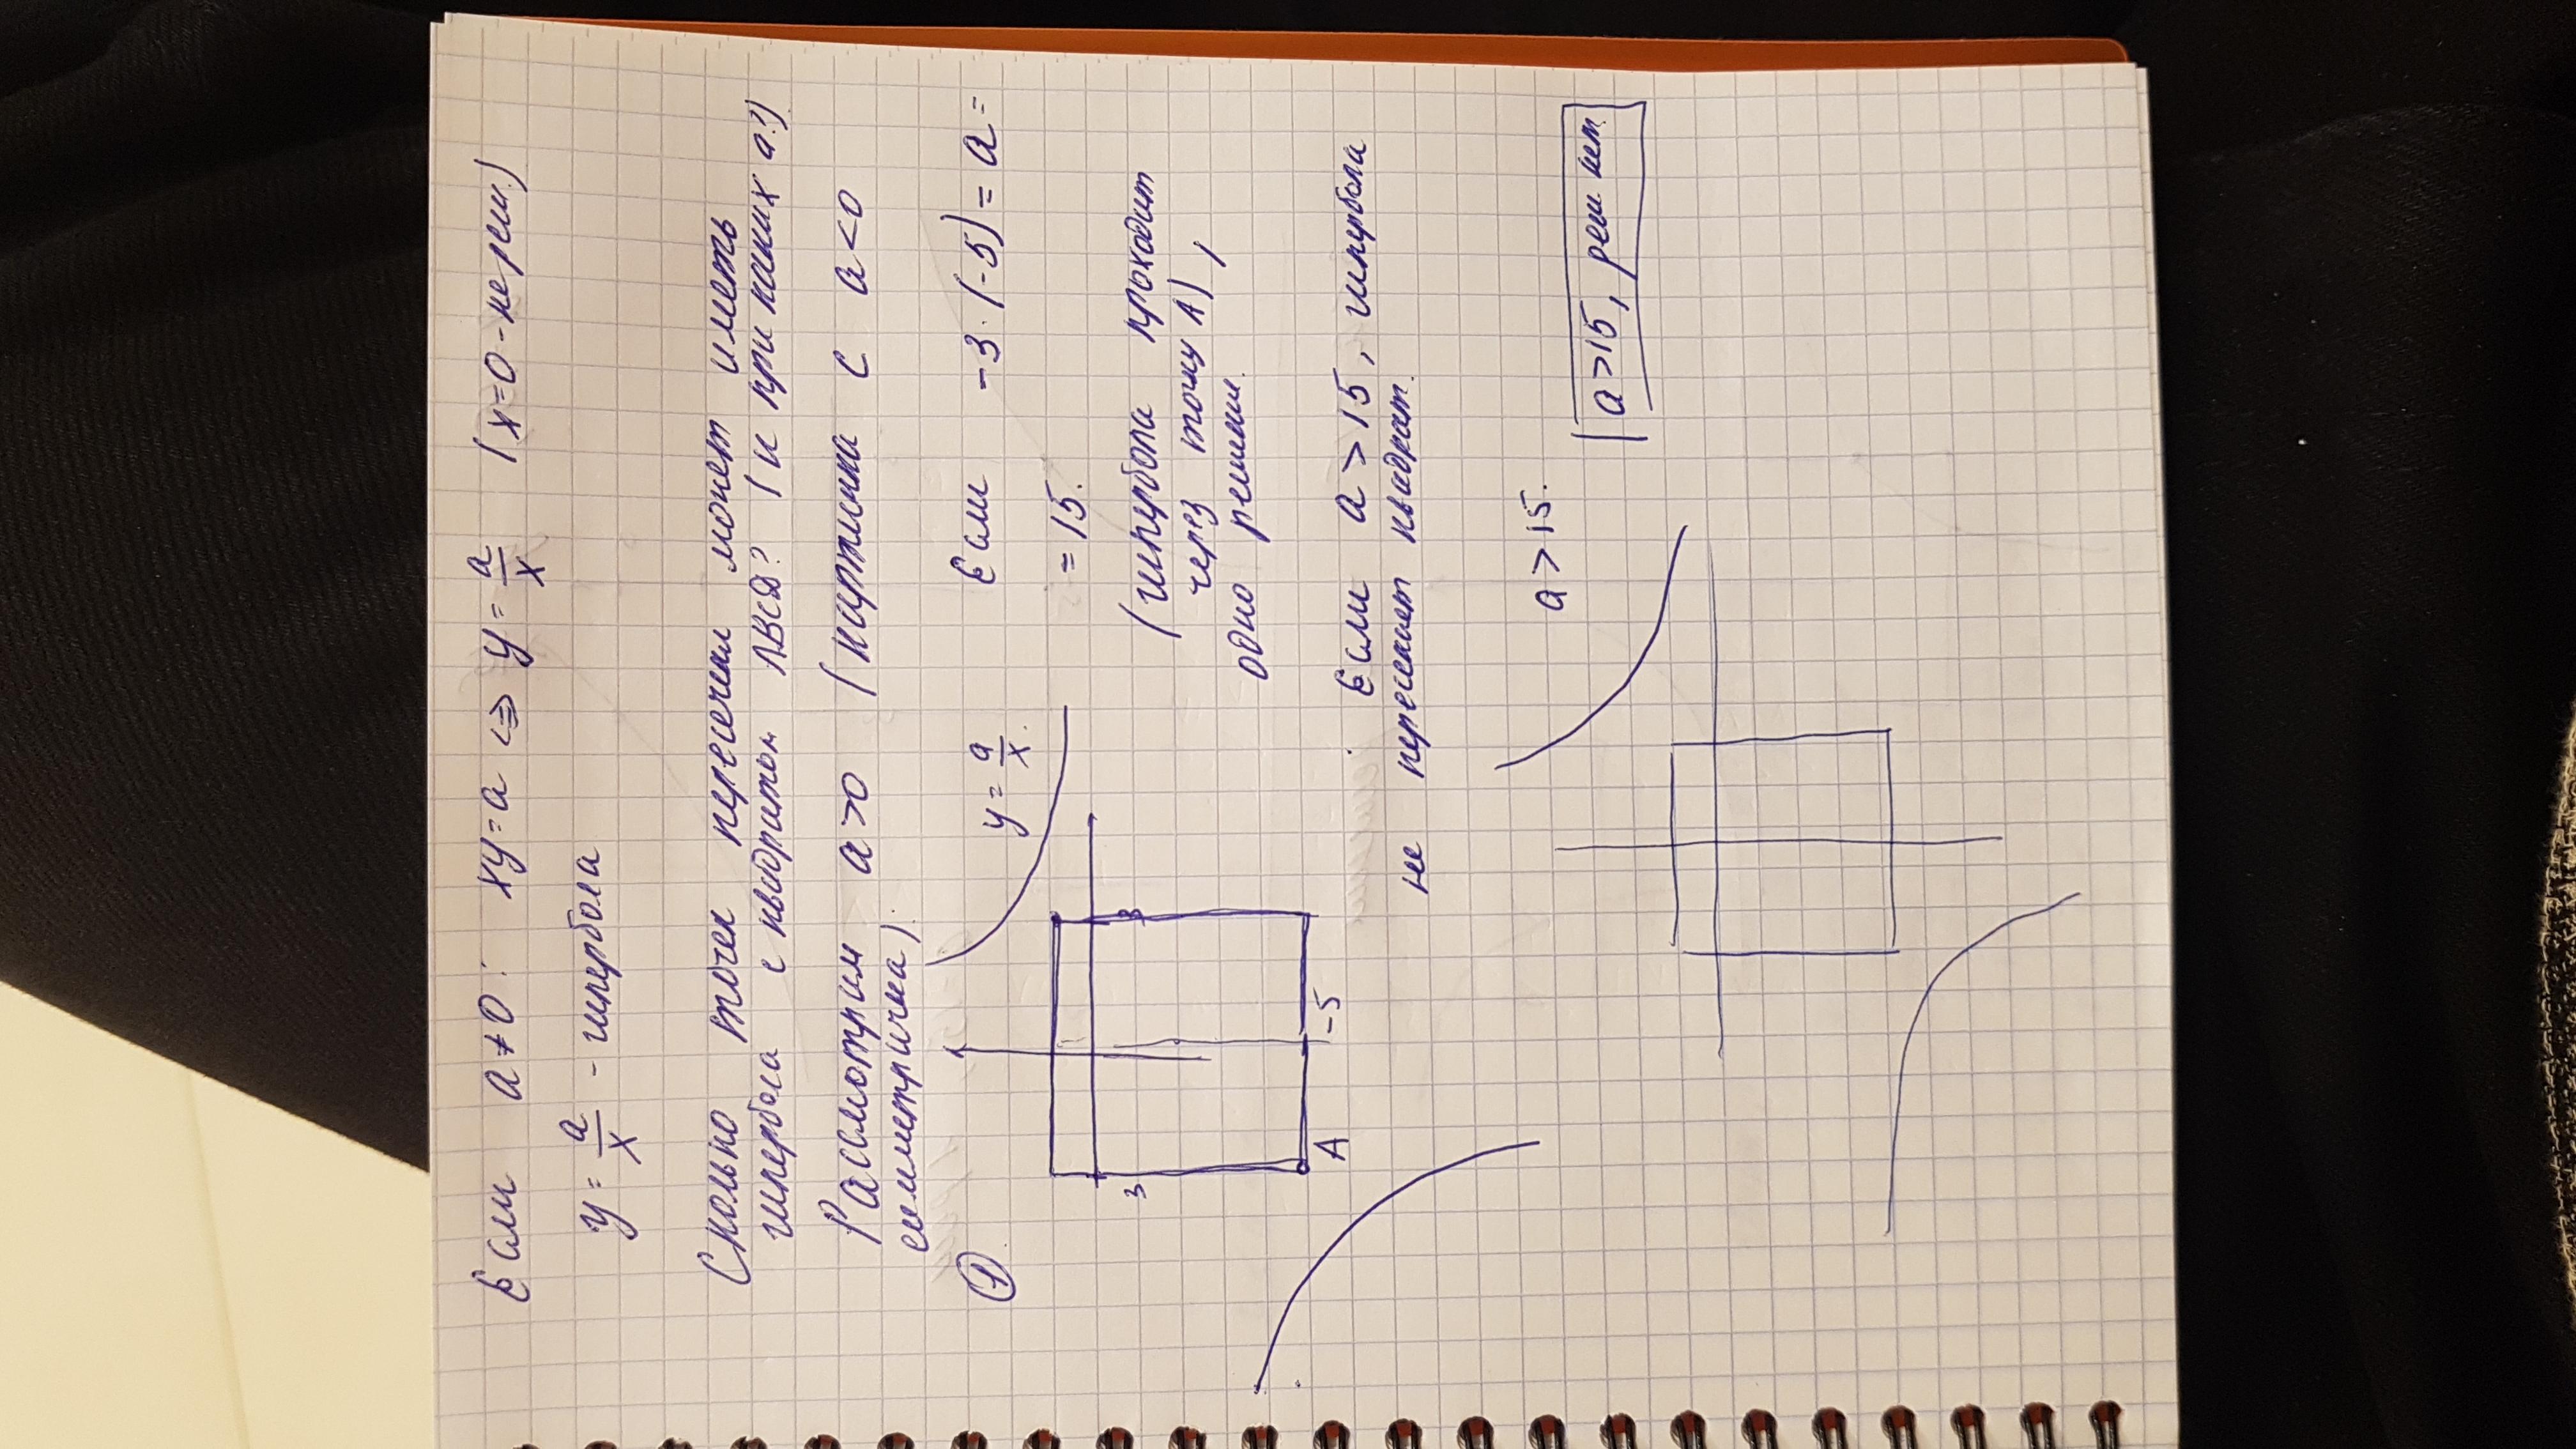 Если a≠0: xy=a <=> y=a/x (x=0-не реш.)
y=a/x - гипербола
Сколько точек пересечения может иметь
гипербола с квадратом ABCD? (и при каких a?)
Рассмотрим a>0 (картинка с a<0
симметрична).
1 y=a/x.
Если -3·(-5)=a=
=15.
(гипербола проходит
через точку A),
одно решение.
3 3
-5
A
Если a>15, гипербола
не пересекает квадрат.
a>15.
a>15, реш нет